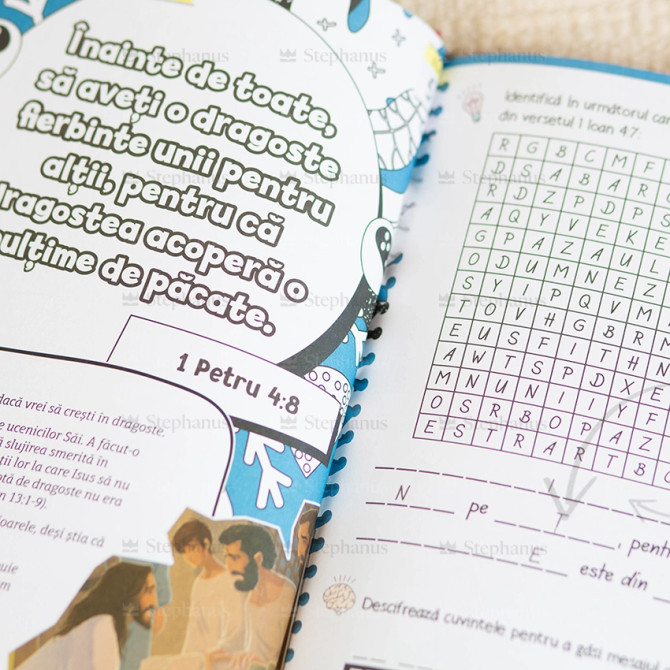 Înainte de toate,
să aveți o dragoste
fierbinte unii pentru
alții, pentru că
dragostea acoperă o
mulțime de păcate.
1 Petru 4:8
dacă vrei să crești în dragoste.
ucenicilor Săi. A făcut-o
slujirea smerită în
lor la care Isus să nu
de dragoste nu era
13:1-9).
deși știa că
Identifică în următorul
din versetul 1 Ioan 4:7:
R G B C M F
D S A B A R
R D Z P D P S
A Q Y V E K E
G P A Z A U L
O D U M N E Z
S Y I P Q V M
T O V H G B R M
E U S F I T H N
A W T S P D X E
M N U N I I Y F
O S R B O P A Z
E S T R A R T B
N pe
E este din
Descifrează cuvintele pentru a găsi
Stephanus